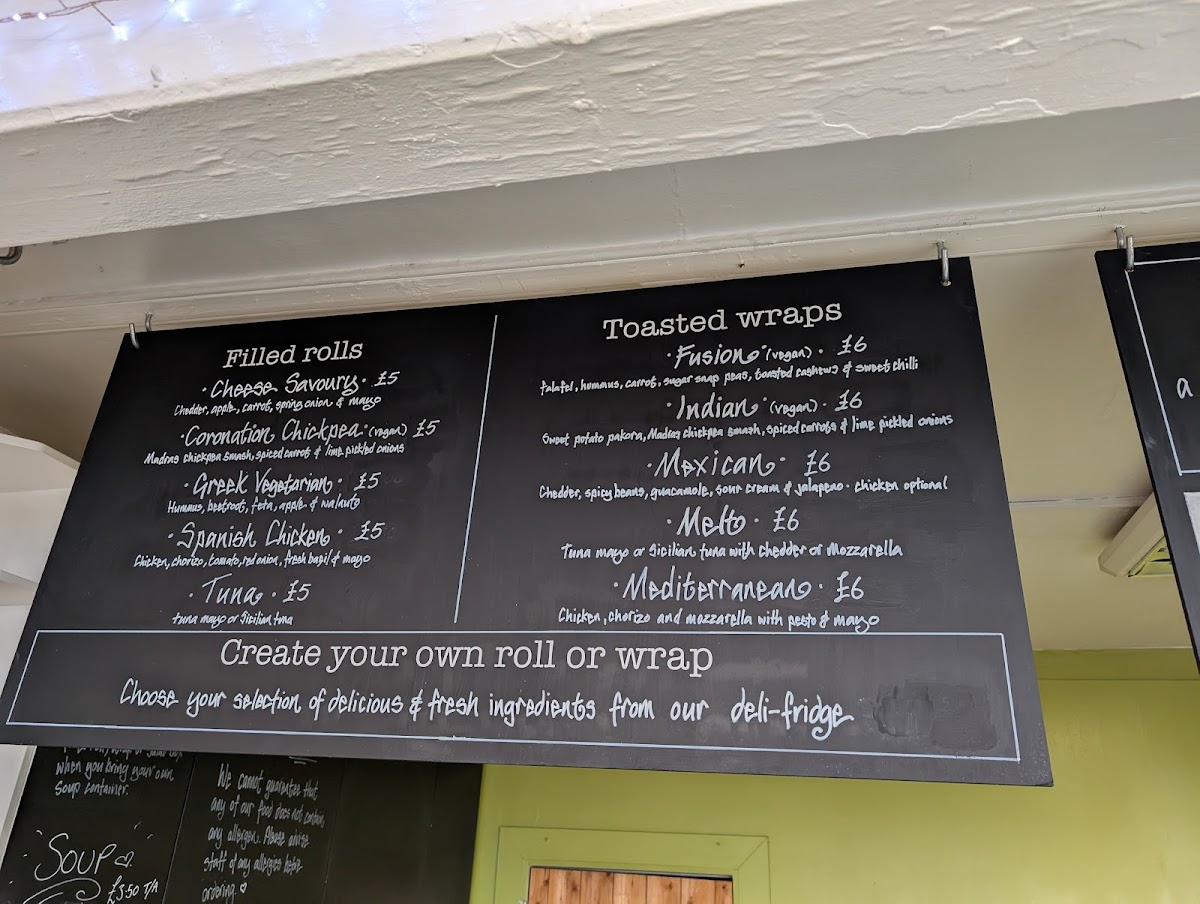 Filled rolls
· Cheese Savoury · £5
Chedder, apple, carrot, spring onion & mayo
· Coronation Chickpea · (vegan) £5
Madras chickpea smash, spiced carrot & lime pickled onions
· Greek Vegetarian · £5
Hummus, beetroot, feta, apple & walnuts
· Spanish Chicken · £5
Chicken, chorizo, tomato, red onion, fresh basil & mayo
· Tuna · £5
tuna mayo or Sicilian tuna
Toasted wraps
· Fusion · (vegan) · £6
falafel, hummus, carrot, sugar snap peas, toasted cashews & sweet chilli
· Indian · (vegan) · £6
Sweet potato pakora, Madras chickpea smash, spiced carrots & lime pickled onions
· Mexican · £6
Chedder, spicy beans, guacamole, sour cream & jalapeno · chicken optional
· Melt · £6
Tuna mayo or Sicilian tuna with chedder or Mozzarella
· Mediterranean · £6
Chicken, chorizo and mozzarella with pesto & mayo
Create your own roll or wrap
Choose your selection of delicious & fresh ingredients from our deli-fridge
a
when you bring your own
Soup container.
SOUP
£3.50 T/A
We cannot guarantee that
any of our food does not contain
any allergen. Please advise
staff of any allergies before
ordering.